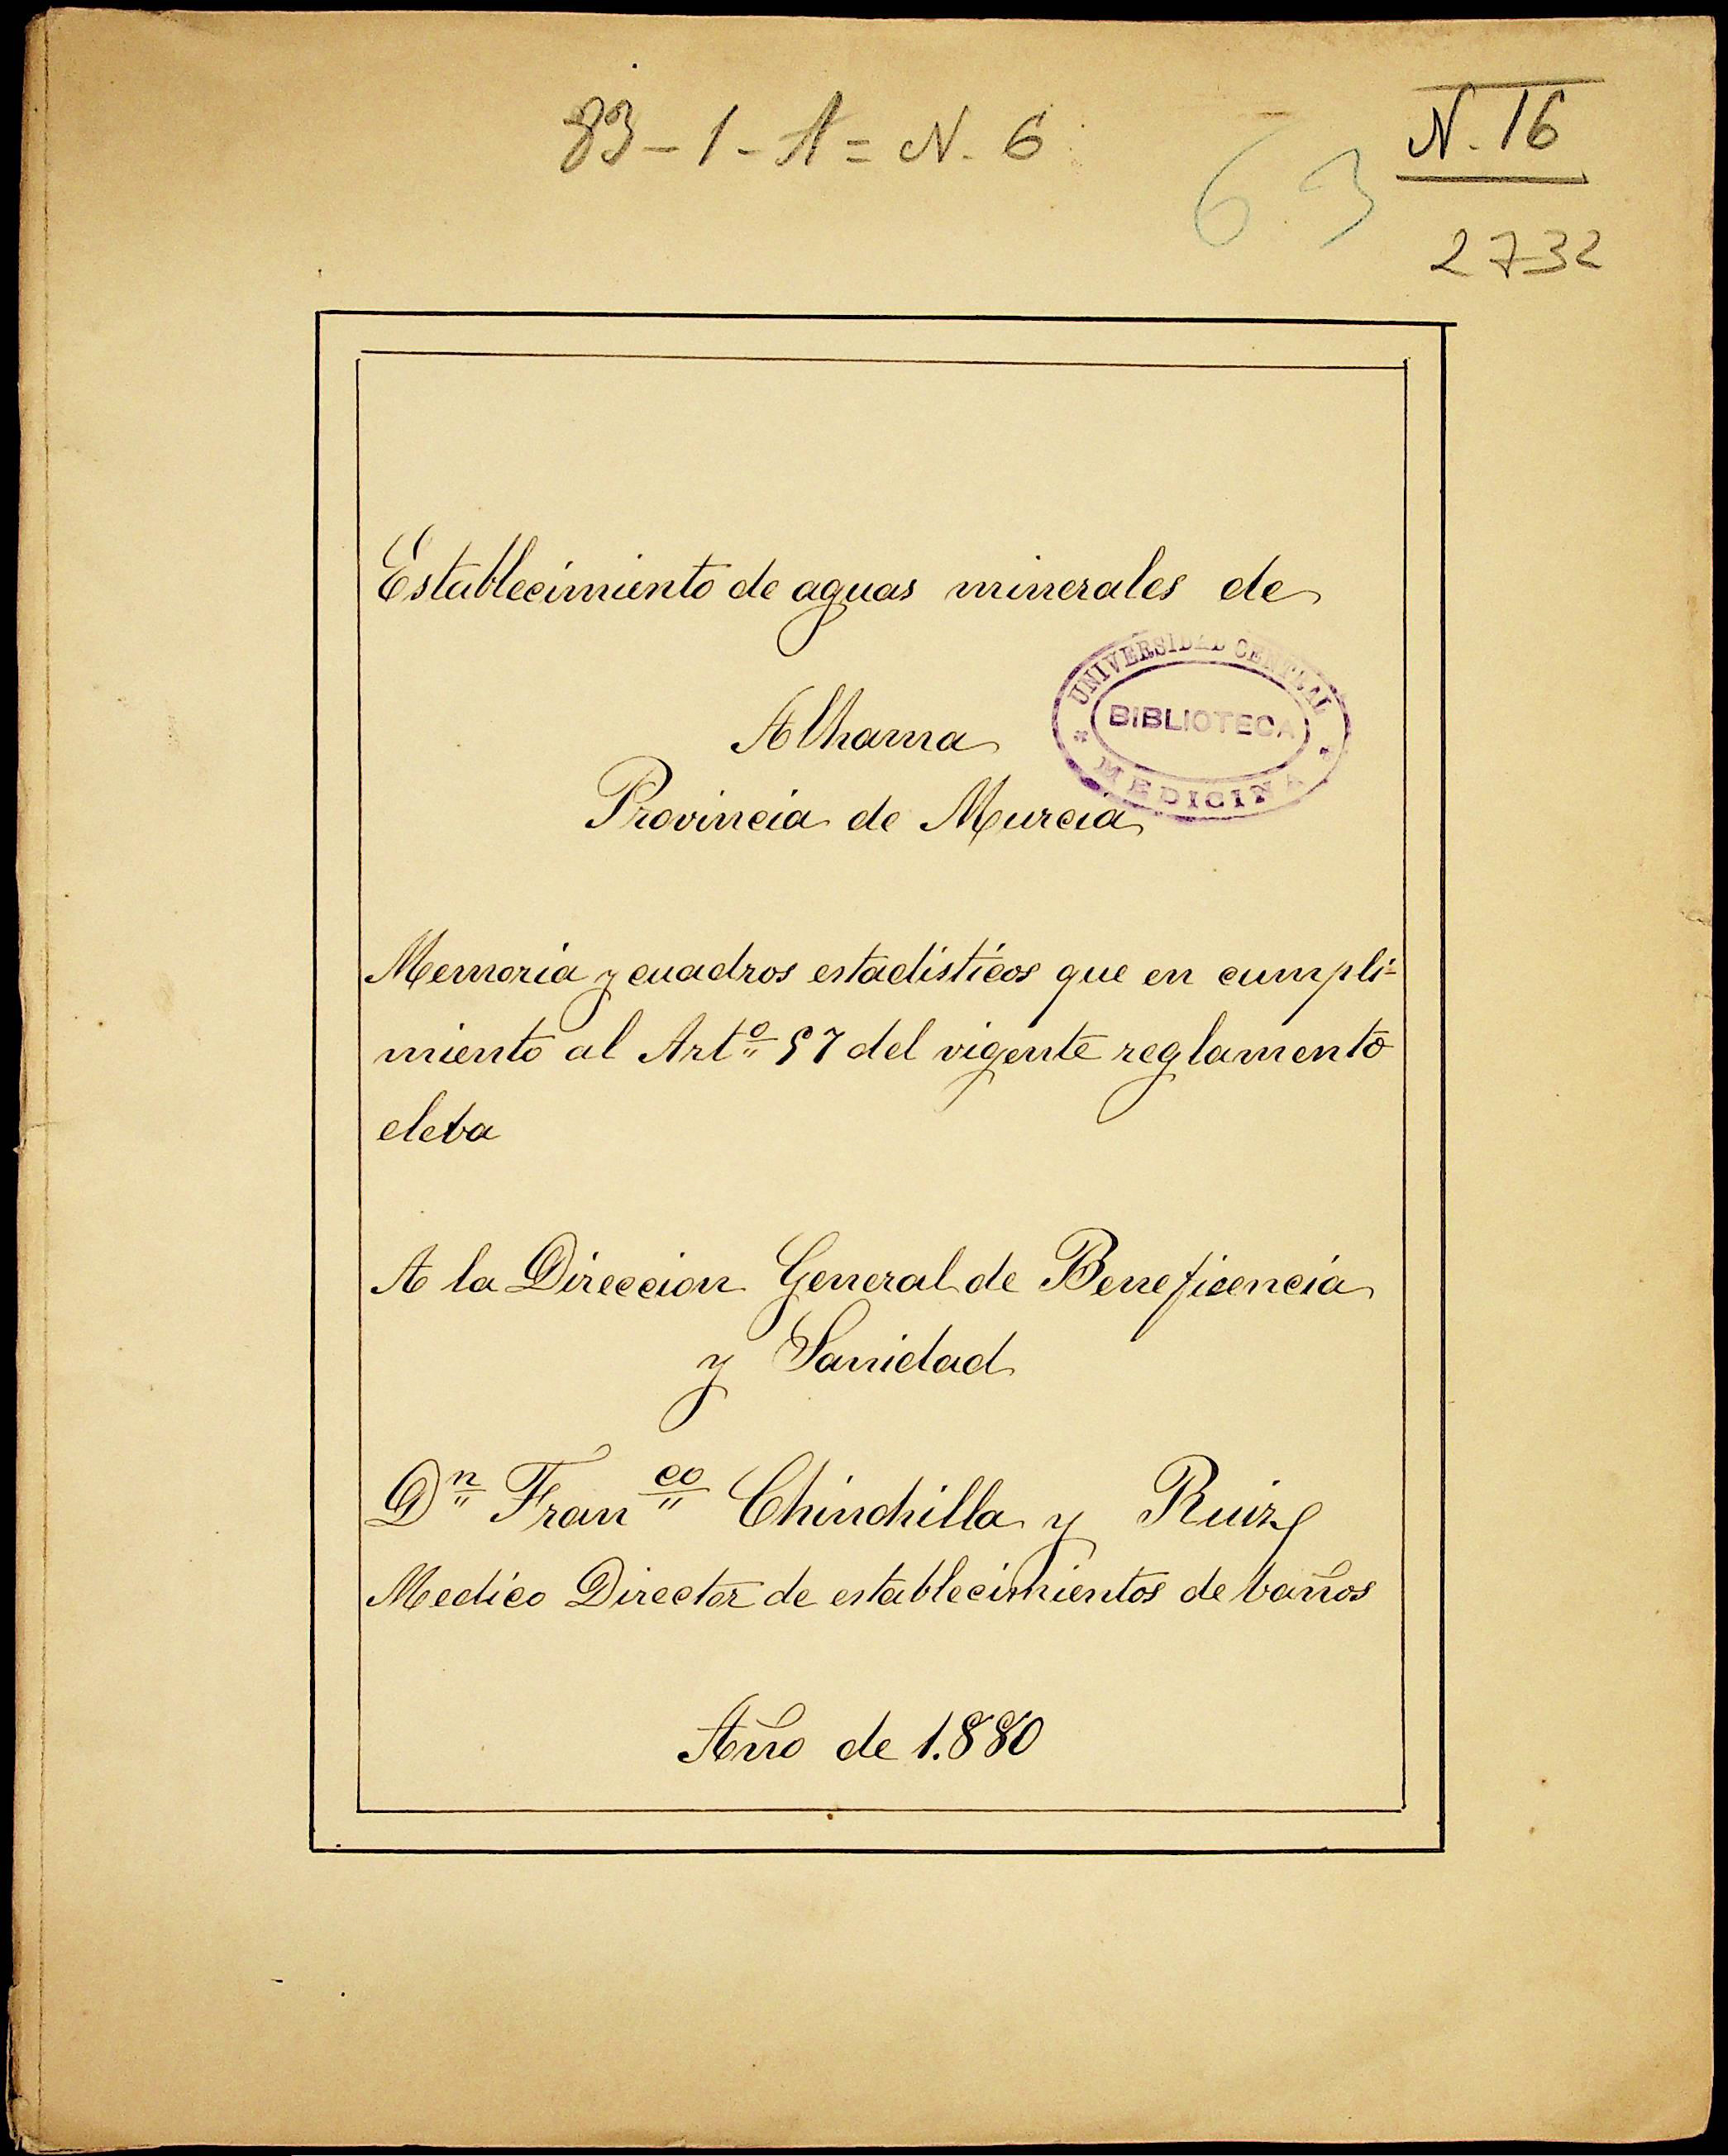 83-1-A = N. 6
N. 16
63
2732
Establecimiento de aguas minerales de
UNIVERSIDAD CENTRAL
BIBLIOTECA
MEDICINA
Alhama
Provincia de Murcia
Memoria y cuadros estadísticos que en cumpli-
miento al Artº 57 del vigente reglamento
eleba
A la Direccion General de Beneficencia
y Sanidad
Dn Franco Chinchilla y Ruiz
Medico Director de establecimientos de baños
Año de 1.880